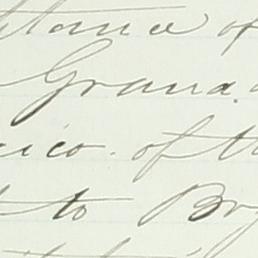 stance of
Grand
ico. of th
t to Br